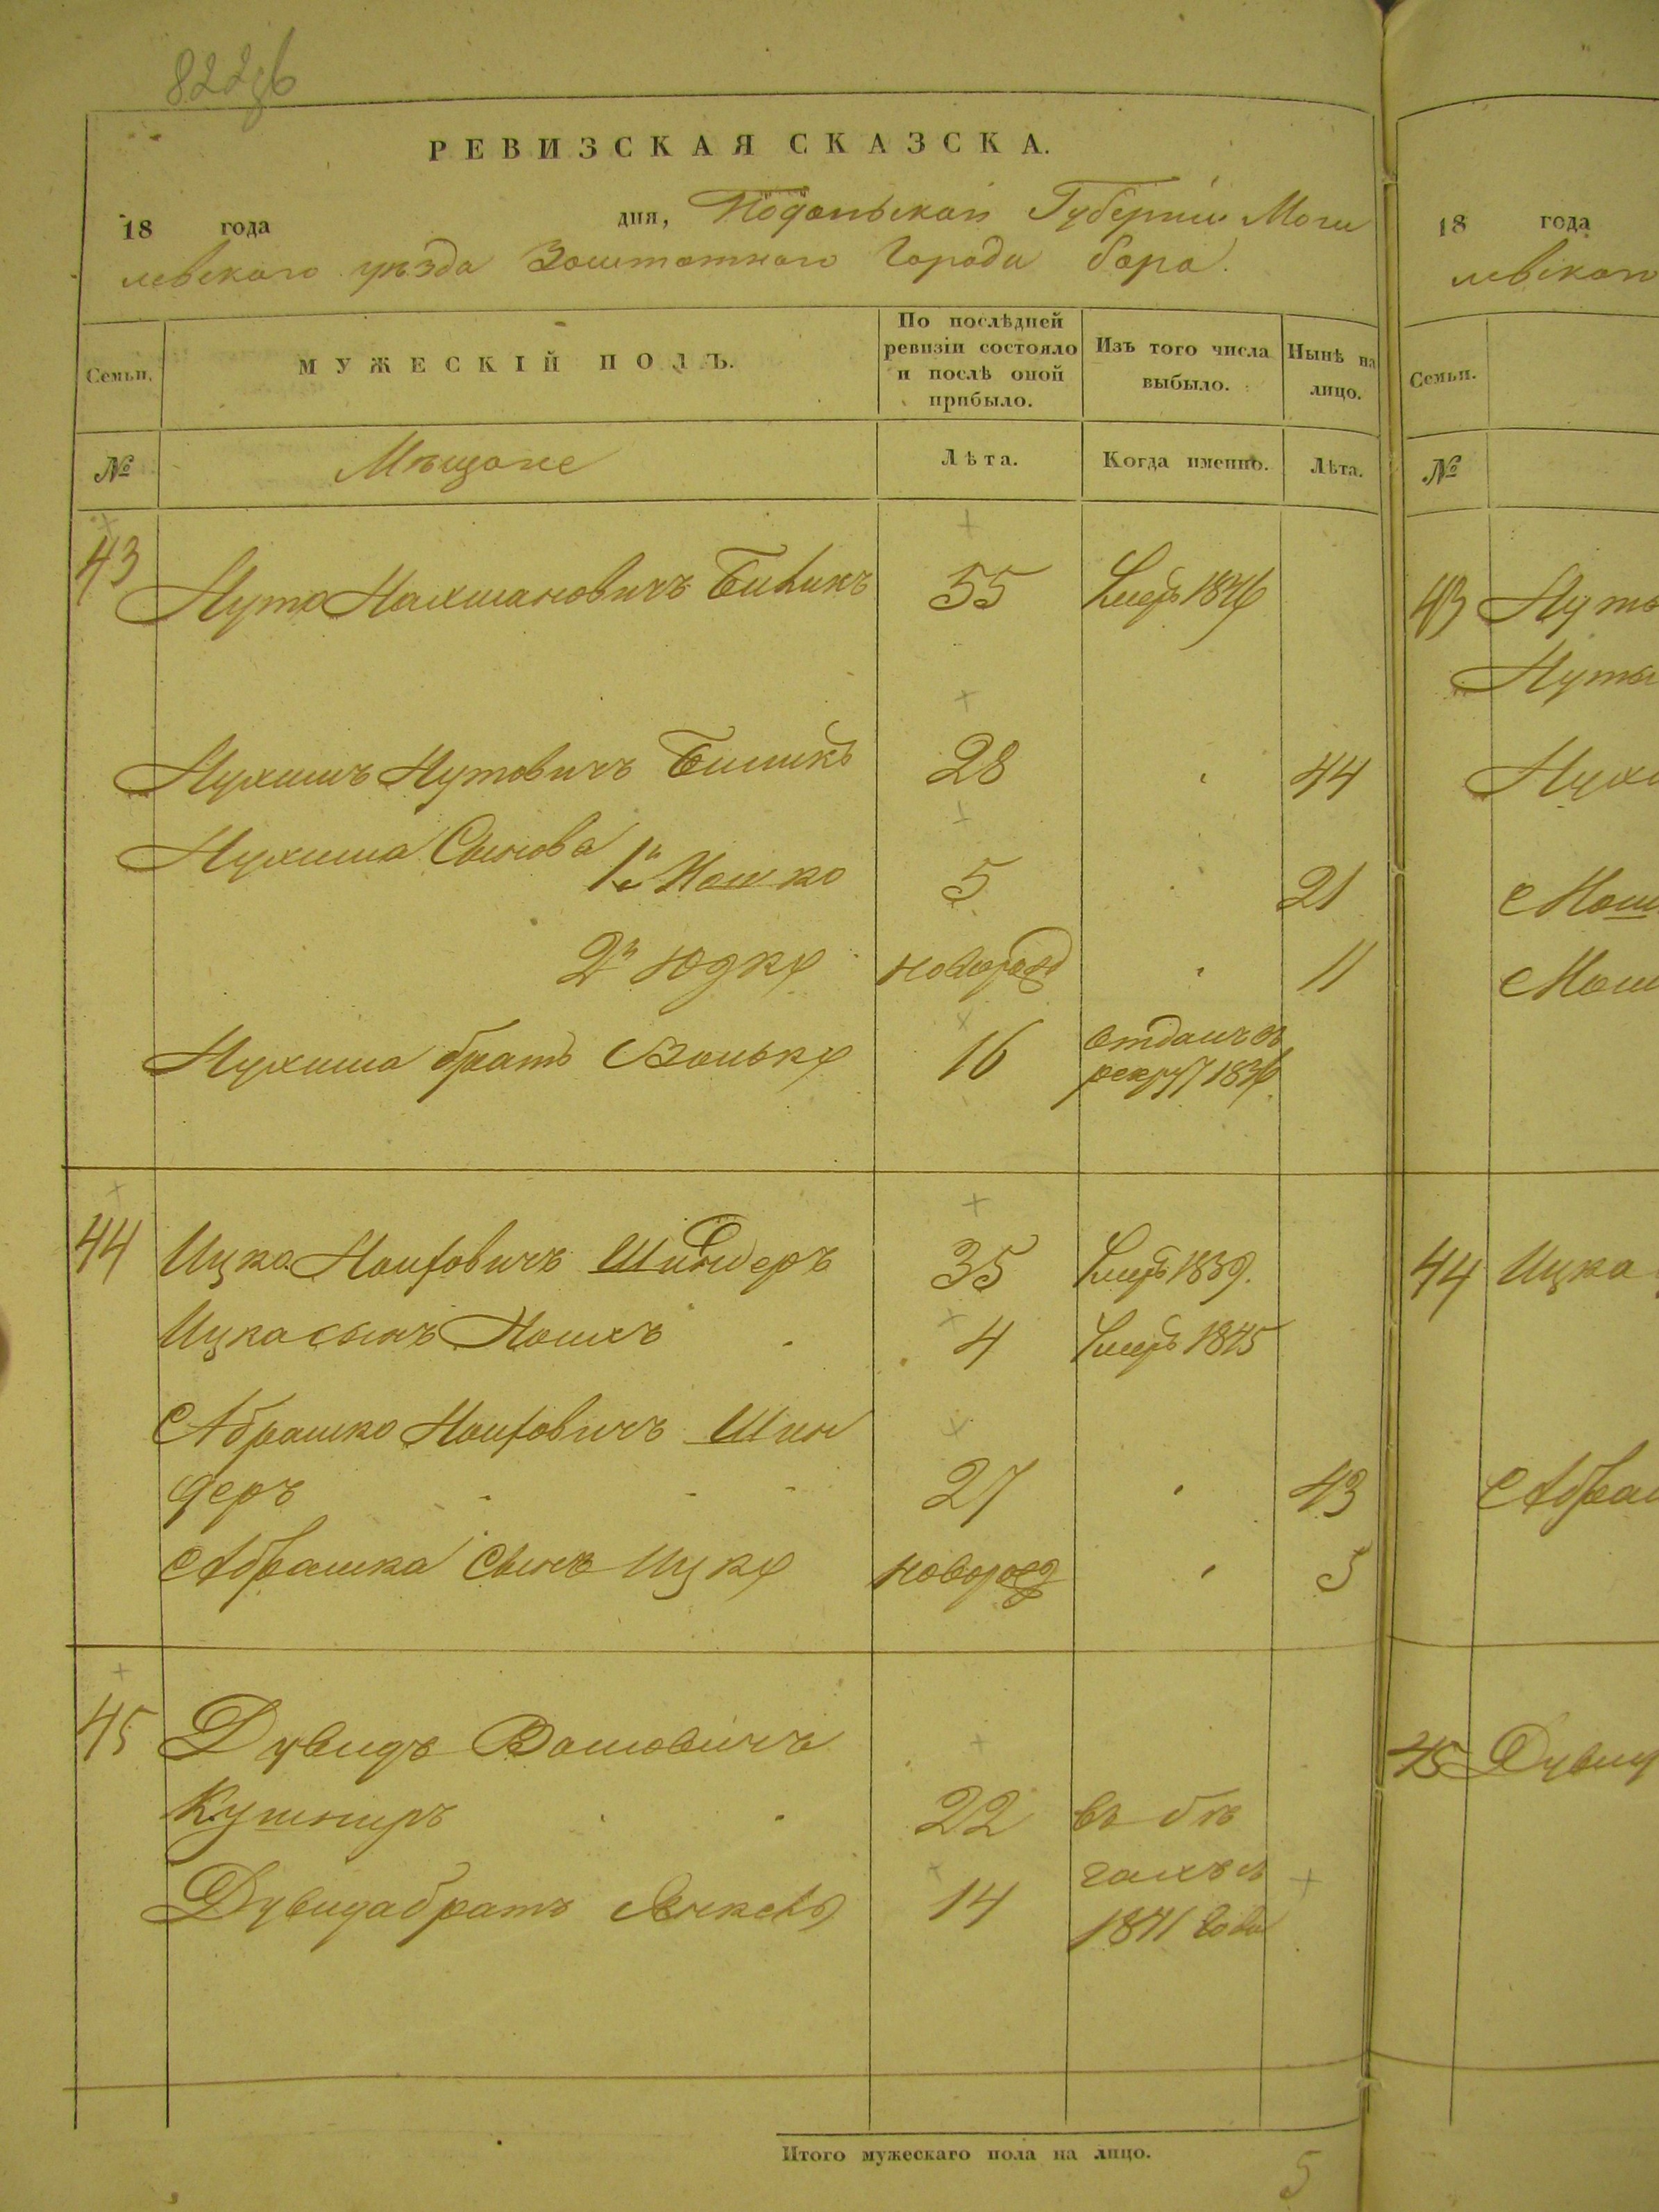 822об
РЕВИЗСКАЯ СКАЗСКА.
18 года дня, Подольской Губерніи Моги
левскаго уѣзда Заштатнаго Города Бара.
Семьи.
МУЖЕСКІЙ ПОЛЪ.
По послѣдней ревизіи состояло и послѣ оной прибыло.
Изъ того числа выбыло.
Нынѣ на лицо.
№
Мѣщане
Лѣта.
Когда именно.
Лѣта.
43 Нута Нахмановичъ 55 1846
Нухимъ Нутовичъ 28 44
Нухима Сынова
1й Мошко 5 21
2й Юдко новорожд 11
Нухима братъ Волько 16 отданъ въ
рекрут 1836
44 Ицко Шиндеръ 35 умеръ 1839.
Ицка сынъ 4 умеръ 1845
Абрашко Шин
деръ 27 43
Абрашка Сынъ Ицко новорожд 5
45 Дувидъ
Кушниръ 22 въ бѣ
гахъ съ
Дувида братъ 14
1841 года
Итого мужескаго пола на лицо.
5
18 года
левскаго
Семьи.
№
43 Нуты
Нуты
Нухи
Мош
Мош
44 Ицка
Абраш
45 Дувид